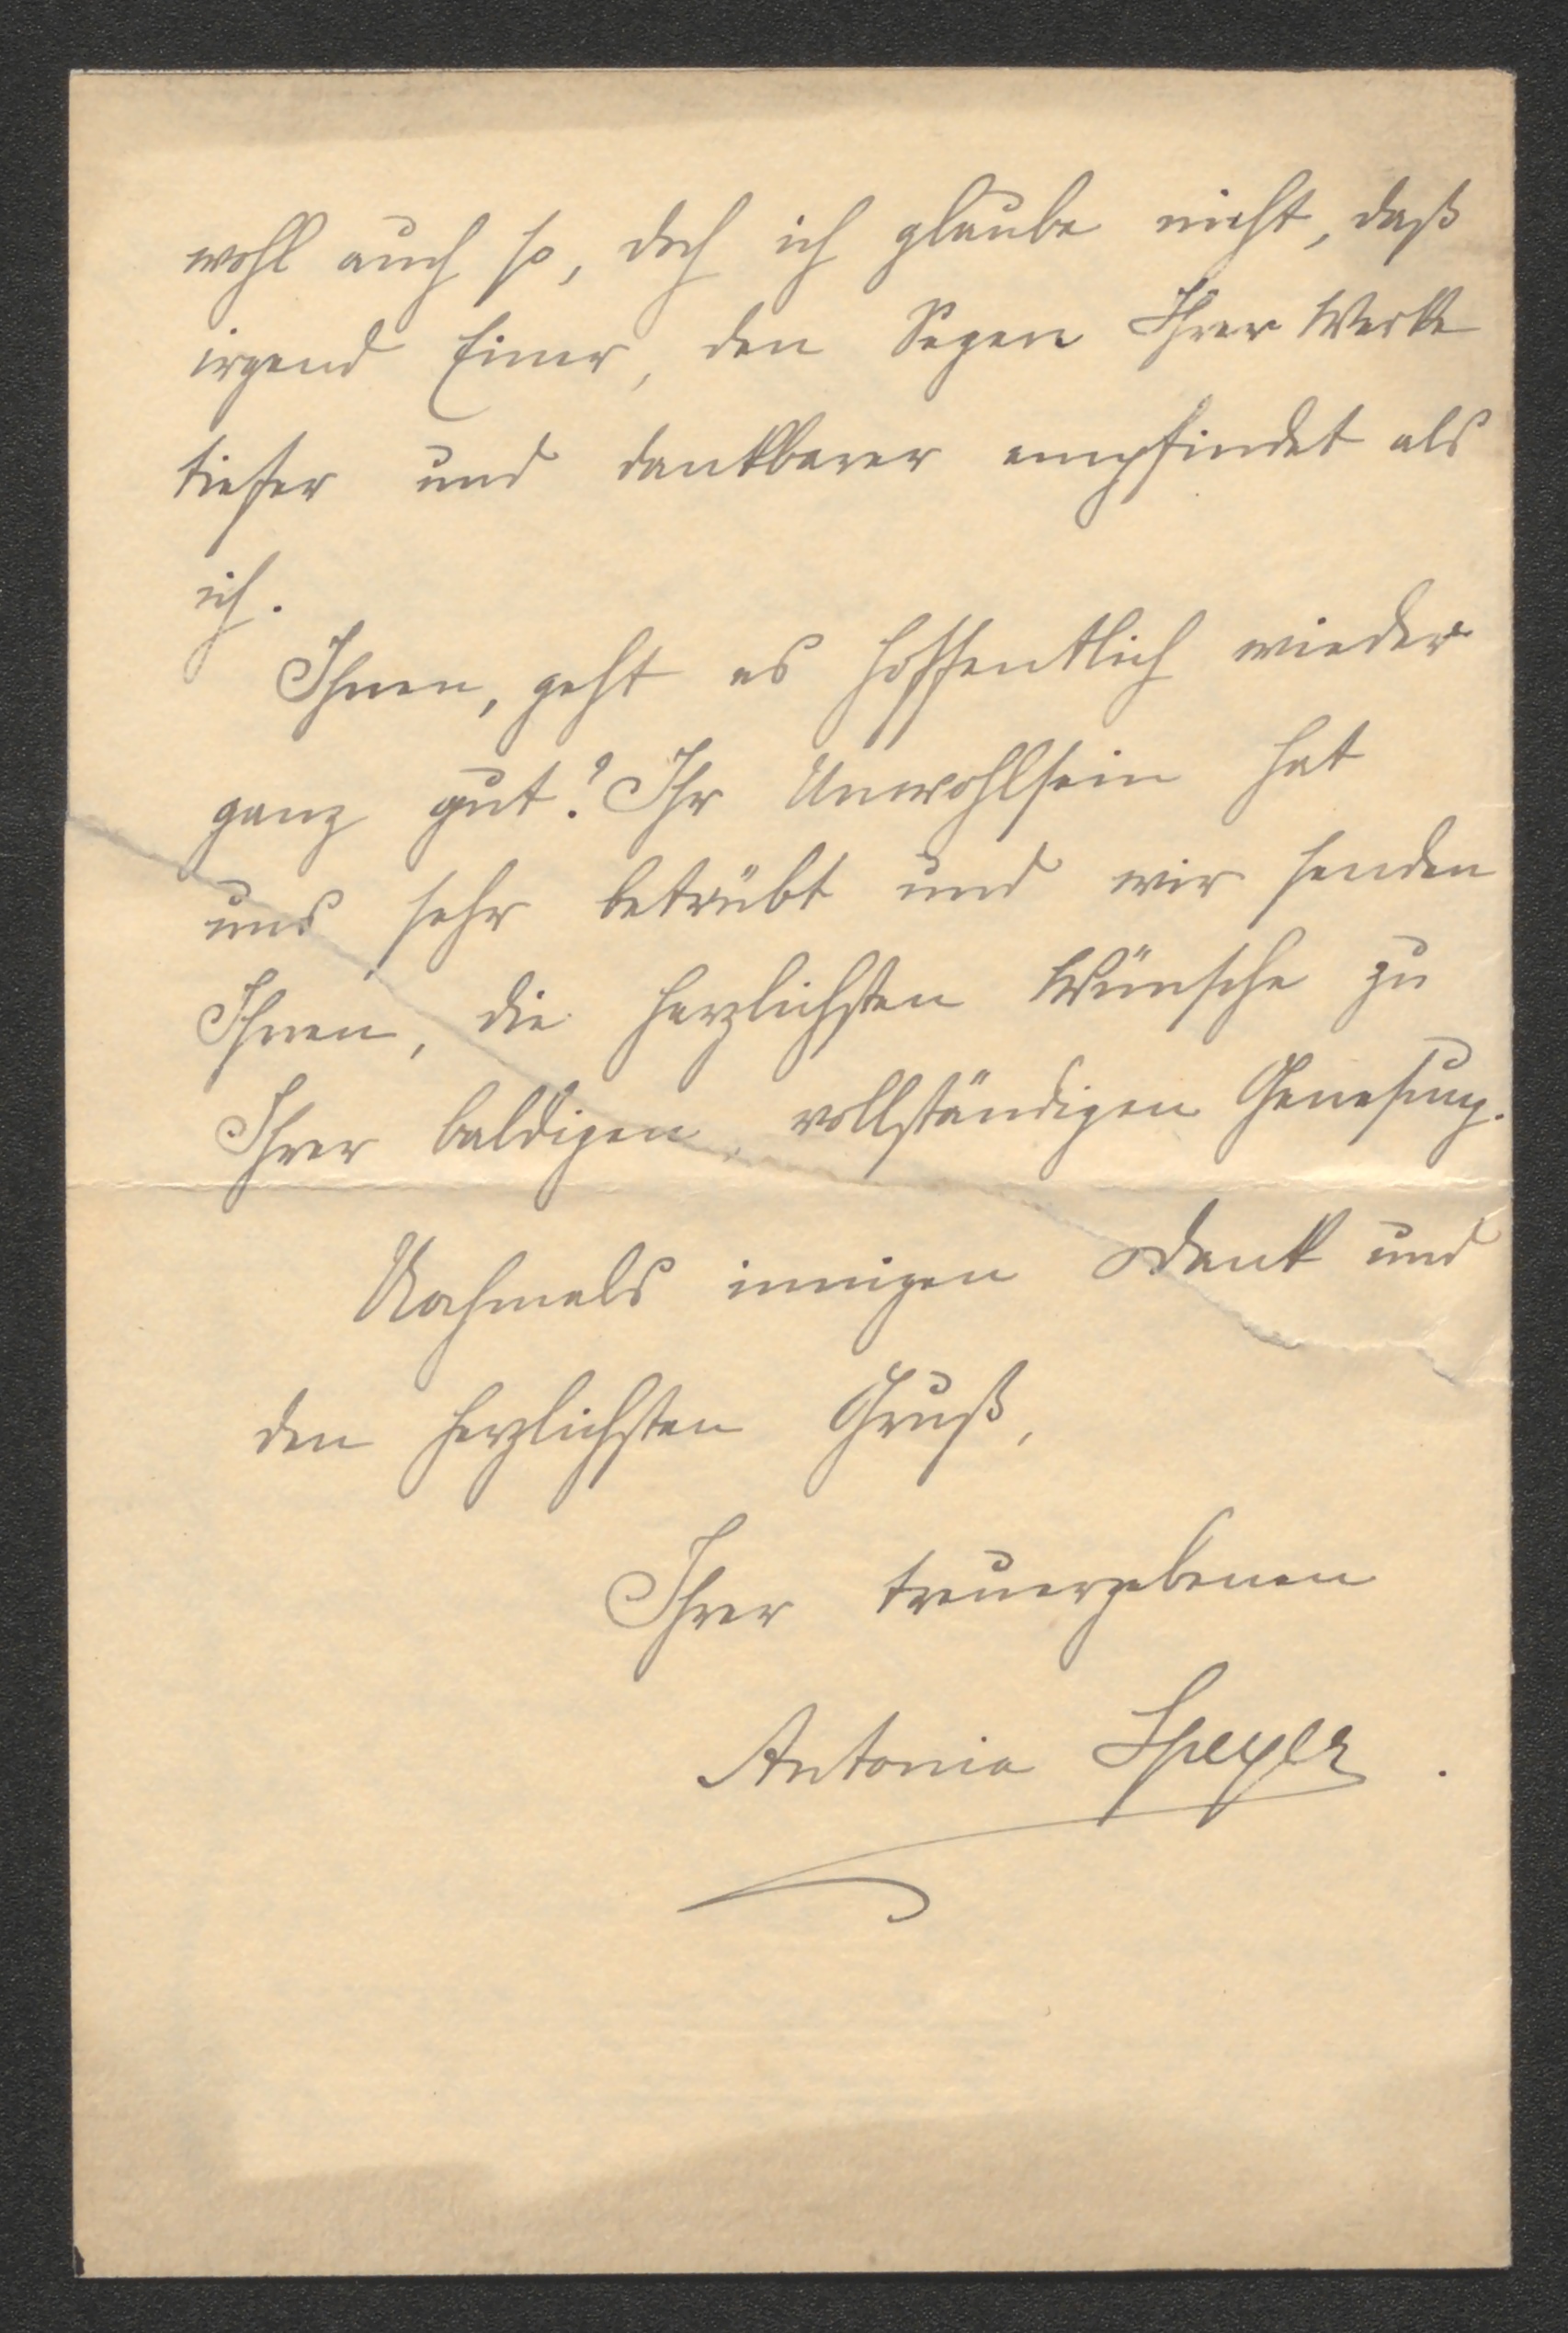 wohl auch so, doch ich glaube nicht, daß
irgend Einer, den Segen Ihrer Werke
tiefer und dankbarer empfindet als
ich.
Ihnen, geht es hoffentlich wieder
ganz gut? Ihr Unwohlsein hat
uns sehr betrübt und wir senden
Ihnen, die herzlichsten Wünsche zu
Ihrer baldigen, vollständigen Genesung.
Nochmals innigen Dank und
den herzlichsten Gruß,
Ihrer treuergebenen
Antonia Speyer.